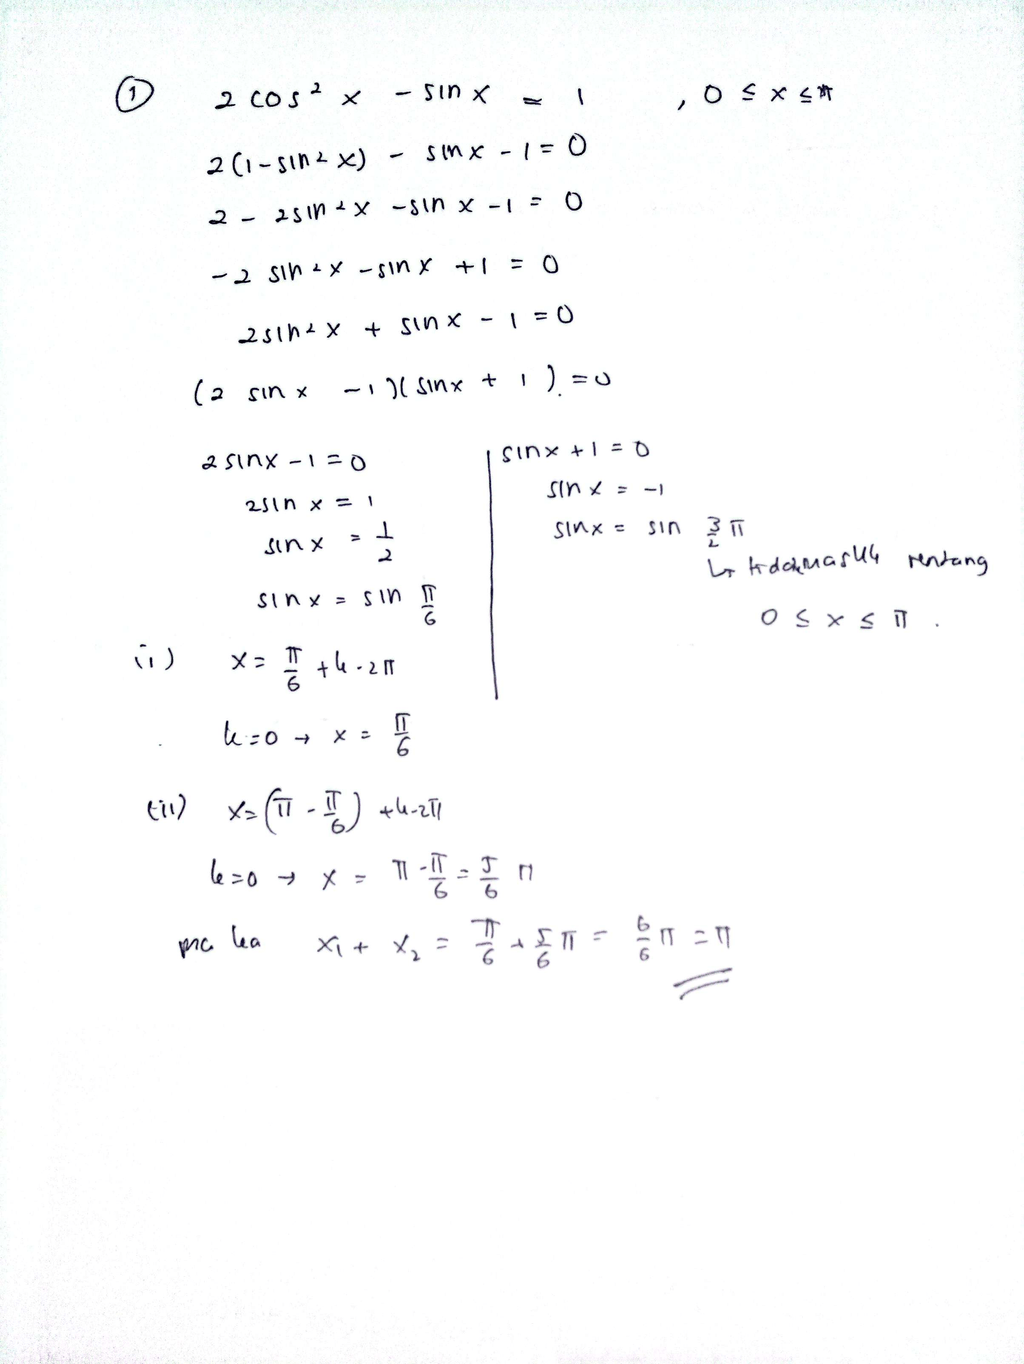 ① 2 cos² x - sin x = 1 , 0 ≤ x ≤ π
2(1 - sin² x) - sin x - 1 = 0
2 - 2 sin² x - sin x - 1 = 0
-2 sin² x - sin x + 1 = 0
2 sin² x + sin x - 1 = 0
(2 sin x - 1)(sin x + 1) = 0
2 sin x - 1 = 0
2 sin x = 1
sin x = 1/2
sin x = sin π/6
(i) x = π/6 + k . 2π
k = 0 → x = π/6
(ii) x = (π - π/6) + k . 2π
k = 0 → x = π - π/6 = 5/6 π
sin x + 1 = 0
sin x = -1
sin x = sin 3/2 π
↳ tidak masuk rentang
0 ≤ x ≤ π .
x₁ + x₂ = π/6 + 5/6 π = 6/6 π = π